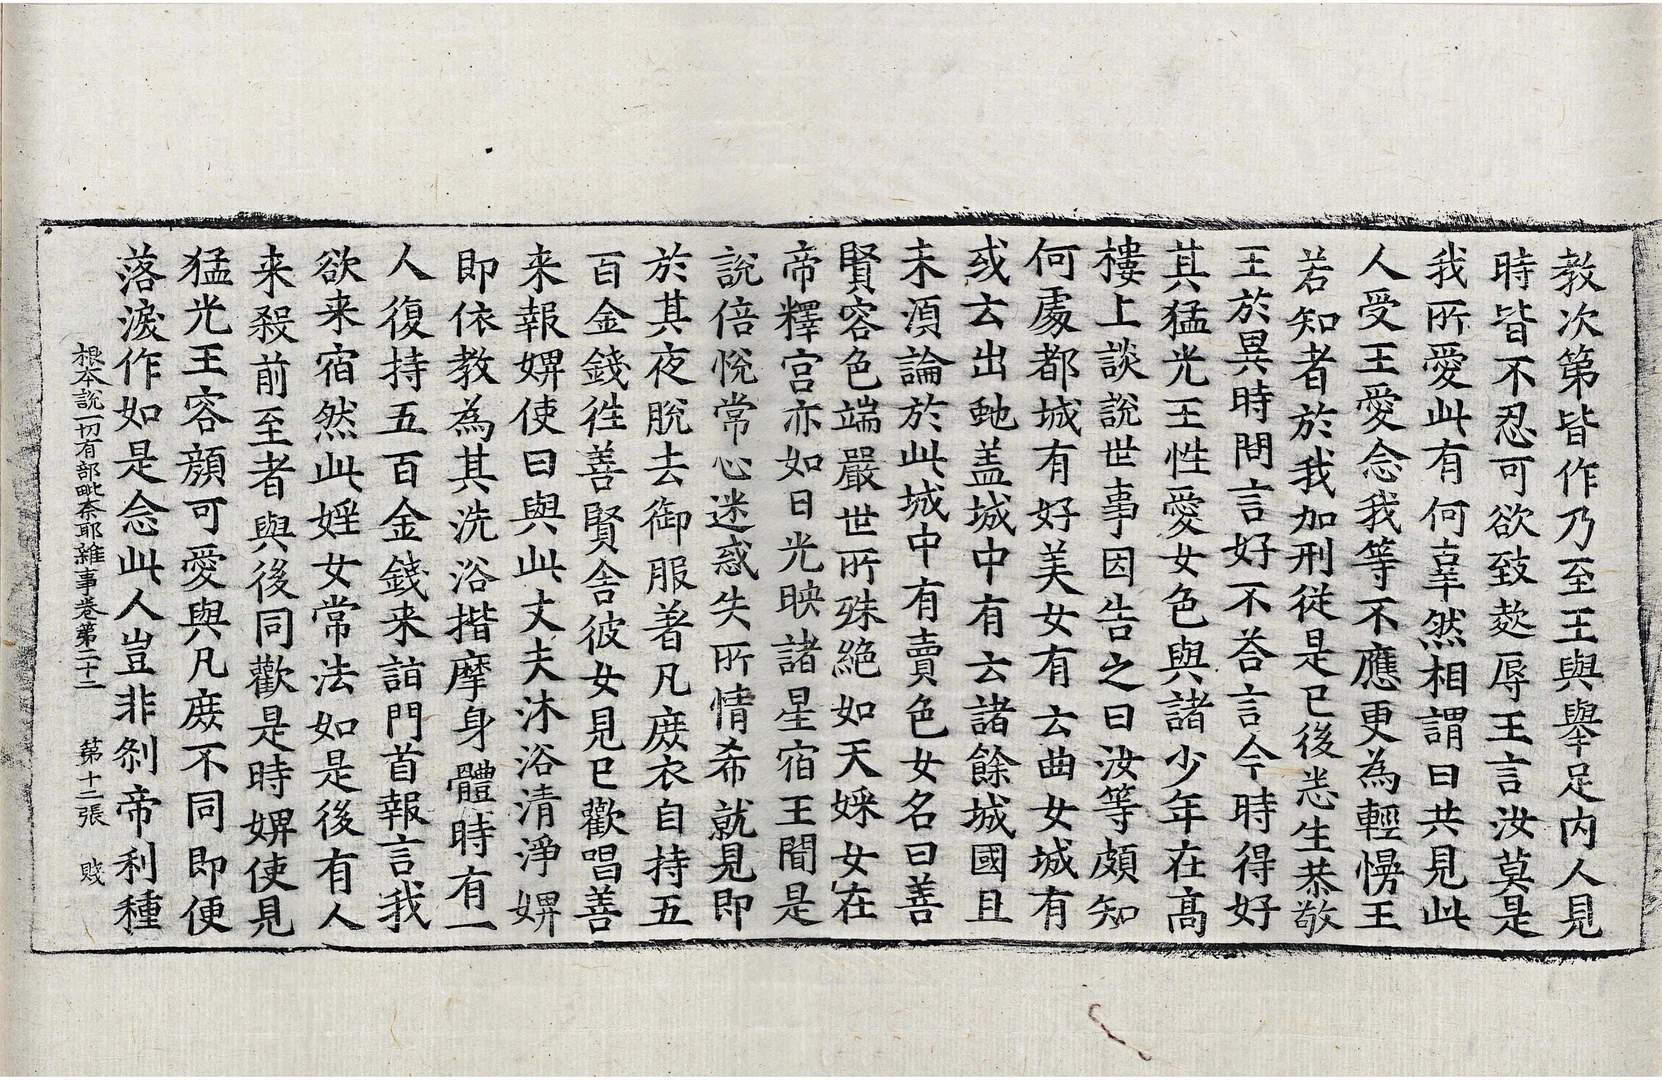 教次第皆作乃至王與舉足内人見
時皆不忍可欲致欶辱王言汝莫是
我所愛此有何辜然相謂曰共見此
人受王愛念我等不應更為輕慢王
若知者於我加刑從是已後悉生恭敬
王於異時問言好不荅言今時得好
其猛光王性愛女色與諸少年在高
樓上談說世事因告之曰汝等頗知
何處都城有好美女有云曲女城有
或云出虵盖城中有云諸餘城國且
未湏論於此城中有賣色女名曰善
賢容色端嚴世所殊絕如天婇女在
帝釋宮亦如日光映諸星宿王聞是
說倍悅常心迷惑失所情希就見即
於其夜脫去御服著凡庶衣自持五
百金錢徃善賢舍彼女見已歡唱善
来報婢使曰與此丈夫沐浴清淨婢
即依教為其洗浴揩摩身體時有一
人復持五百金錢来詣門首報言我
欲来宿然此婬女常法如是後有人
来殺前至者與後同歡是時婢使見
猛光王容顏可愛與凡庶不同即便
落淚作如是念此人豈非剎帝利種
根本說一切有部毗奈耶雜事卷第二十二 第十二張 賤